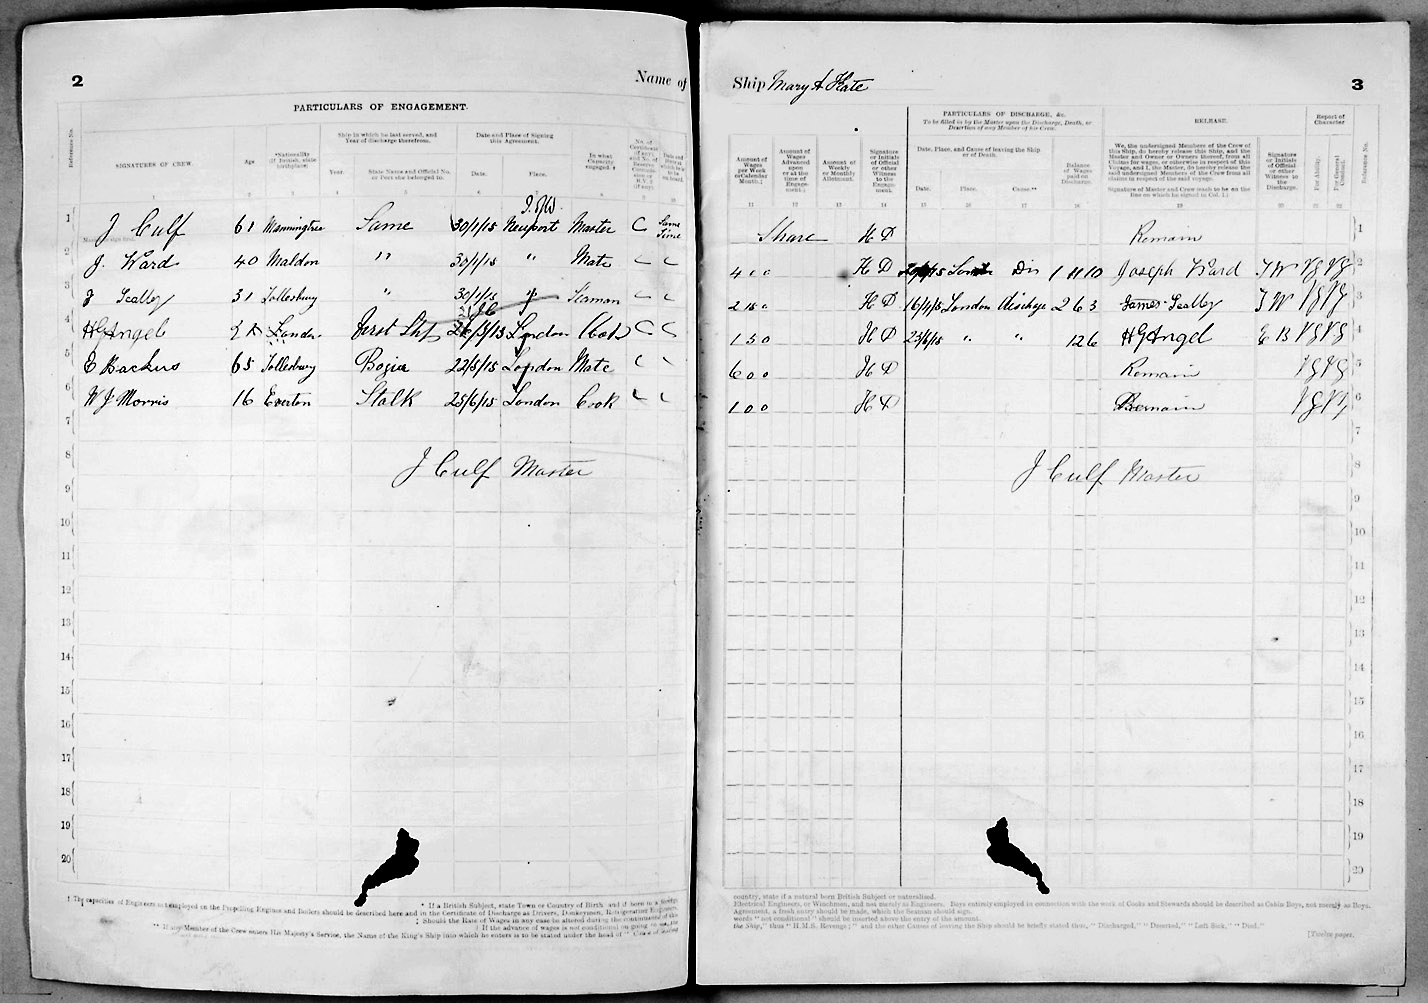 2
Name of
PARTICULARS OF ENGAGEMENT.
Reference No.
SIGNATURES OF CREW.
Age
*Nationality (If British, state birthplace).
Ship in which he last served, and Year of discharge therefrom.
Year.
State Name and Official No. or Port she belonged to.
Date and Place of Signing this Agreement.
Date.
Place.
In what Capacity engaged.
1 J Culf 61 Manningtree Same 30/1/15 Newport Master C Same Time
I. of W.
2 J. Ward 40 Maldon " 30/1/15 " Mate
3 J Sealley 31 Tollesbury " 30/1/15 " Seaman
4 HGAngel London First Ship London Cook
5 E Backus 65 Tollesbury 22/5/15 London Mate
6 W J Morris 16 Everton Stalk 25/6/15 London Cook
7
8 J Culf Master
9
10
11
12
13
14
15
16
17
18
19
20
* If a British Subject, state Town or Country of Birth, and if born in a foreign
† The capacities of Engineers not employed on the Propelling Engines and Boilers should be described here and in the Certificate of Discharge as Drivers, Donkeymen, Refrigerating Engineers,
‡ Should the Rate of Wages in any case be altered during the continuance of the
** If any Member of the Crew enters His Majesty's Service, the Name of the King's Ship into which he enters is to be stated under the head of
Ship Mary A Kate
3
PARTICULARS OF DISCHARGE, &c.
To be filled in by the Master upon the Discharge, Death, or Desertion of any Member of his Crew.
RELEASE.
Report of Character
Amount of Wages per Week or Calendar Month.
Amount of Wages Advanced upon or at the time of Engagement.
Amount of Weekly or Monthly Allotment.
Signature or Initials of Official or other Witness to the Engagement.
Date, Place, and Cause of leaving the Ship or of Death.
Date.
Place.
Cause.**
Balance of Wages paid on Discharge.
We, the undersigned Members of the Crew of this Ship, do hereby release this Ship, and the Master and Owner or Owners thereof, from all Claims for wages, or otherwise in respect of this Voyage, and I, the Master, do hereby release the said undersigned Members of the Crew from all claims in respect of the said voyage.
Signature of Master and Crew (each to be on the line on which he signed in Col. 1.)
Signature or Initials of Official or other Witness to the Discharge.
For Ability.
For General Conduct.
Reference No.
11 12 13 14 15 16 17 18 19 20 21 22
Share H D Remain 1
4 0 0 H D Dis 1 11 10 Joseph Ward J W VG VG 2
H D 16/4/15 London discharge 2 6 3 James Sealley J W VG VG 3
H D 23/6/15 " " 12 6 HGAngel E B VG VG 4
6 0 0 H D Remain VG VG 5
1 0 0 H D Remain VG VG 6
7
J Culf Master 8
9
10
11
12
13
14
15
16
17
18
19
20
country, state if a natural born British Subject or naturalised.
Electrical Engineers, or Winchmen, and not merely as Engineers. Boys entirely employed in connection with the work of Cooks and Stewards should be described as Cabin Boys, not merely as Boys.
Agreement, a fresh entry should be made, which the Seaman should sign.
words "not conditional" should be inserted above the entry of the amount.
the Ship," thus "H.M.S. Revenge;" and the other Causes of leaving the Ship should be briefly stated thus, "Discharged," "Deserted," "Left Sick," "Died."
[Twelve pages.